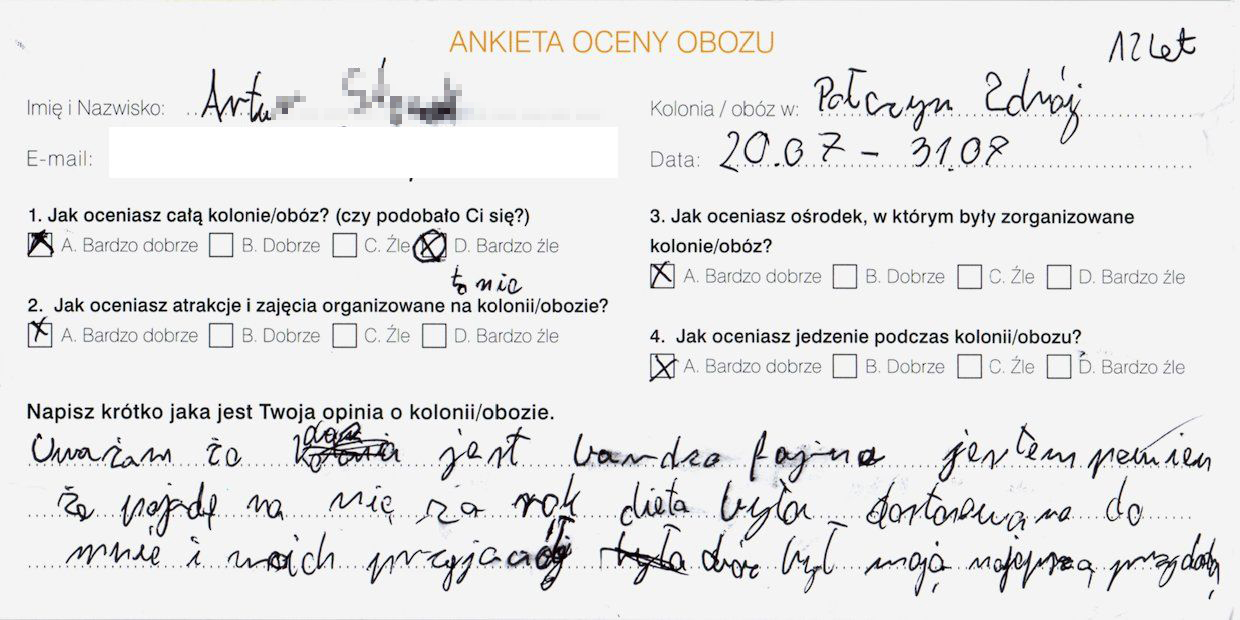 ANKIETA OCENY OBOZU
12 let
Imię i Nazwisko: Artur
Kolonia / obóz w: Połczyn Zdrój
E-mail:
Data: 20.07 - 31.07
1. Jak oceniasz całą kolonie/obóz? (czy podobało Ci się?)
A. Bardzo dobrze B. Dobrze C. Źle D. Bardzo źle
to nie
2. Jak oceniasz atrakcje i zajęcia organizowane na kolonii/obozie?
A. Bardzo dobrze B. Dobrze C. Źle D. Bardzo źle
3. Jak oceniasz ośrodek, w którym były zorganizowane
kolonie/obóz?
A. Bardzo dobrze B. Dobrze C. Źle D. Bardzo źle
4. Jak oceniasz jedzenie podczas kolonii/obozu?
A. Bardzo dobrze B. Dobrze C. Źle D. Bardzo źle
Napisz krótko jaka jest Twoja opinia o kolonii/obozie.
Uważam że jest bardzo fajna jestem pewien
że pojadę na nię za rok dieta była dostosowana do
mnie i moich przyjaciół był moją najlepszą przygodą